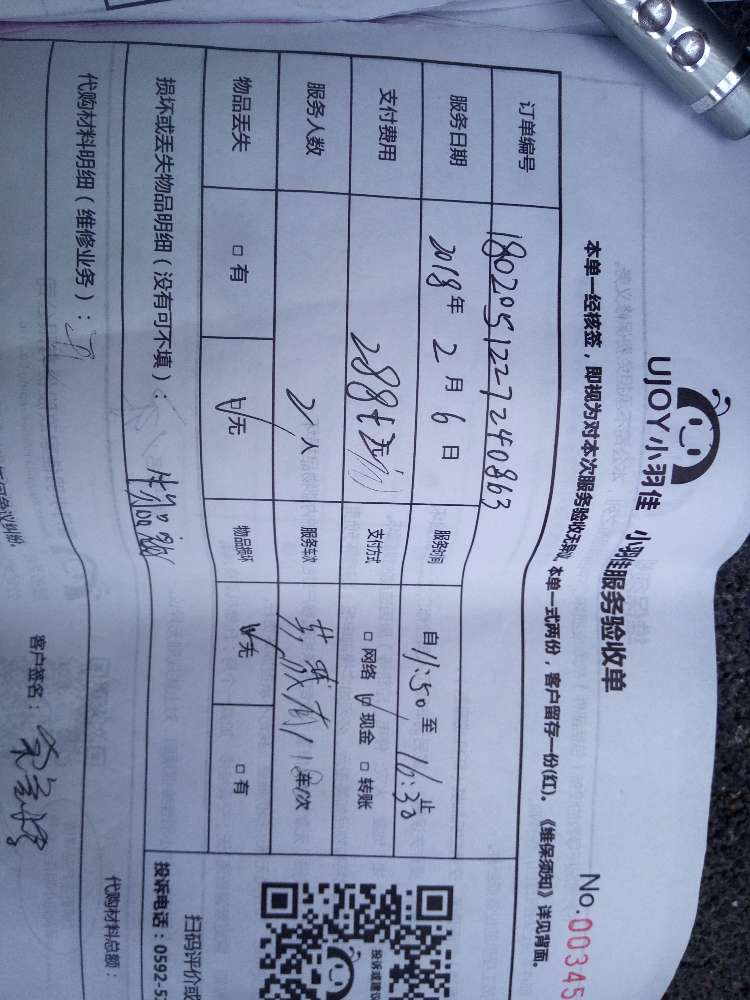 UJOY小羽佳 小羽佳服务验收单
No.00345
本单一经核签，即视为对本次服务验收无疑议，本单一式两份，客户留存一份(红)。《维保须知》详见背面。
订单编号 1802051227240863
服务日期 2018年2月6日 服务时间 自11:50至16:30止
支付费用 288元 支付方式 □网络 ☑现金 □转账
服务人数 2人 服务车次 车/次
物品丢失 □有 ☑无 物品损坏 ☑无 □有
损坏或丢失物品明细（没有可不填）：
代购材料明细（维修业务）：无
代购材料总额：
客户签名：
扫码评价或
投诉电话：0592-5
投诉或建议